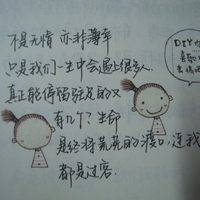 不是无情 亦非薄幸
只是我们一生中会遇上很多人
真正能停留驻足的又
有几个？生命
是终将荒芜的渡口，连我
都是过客.
DIY